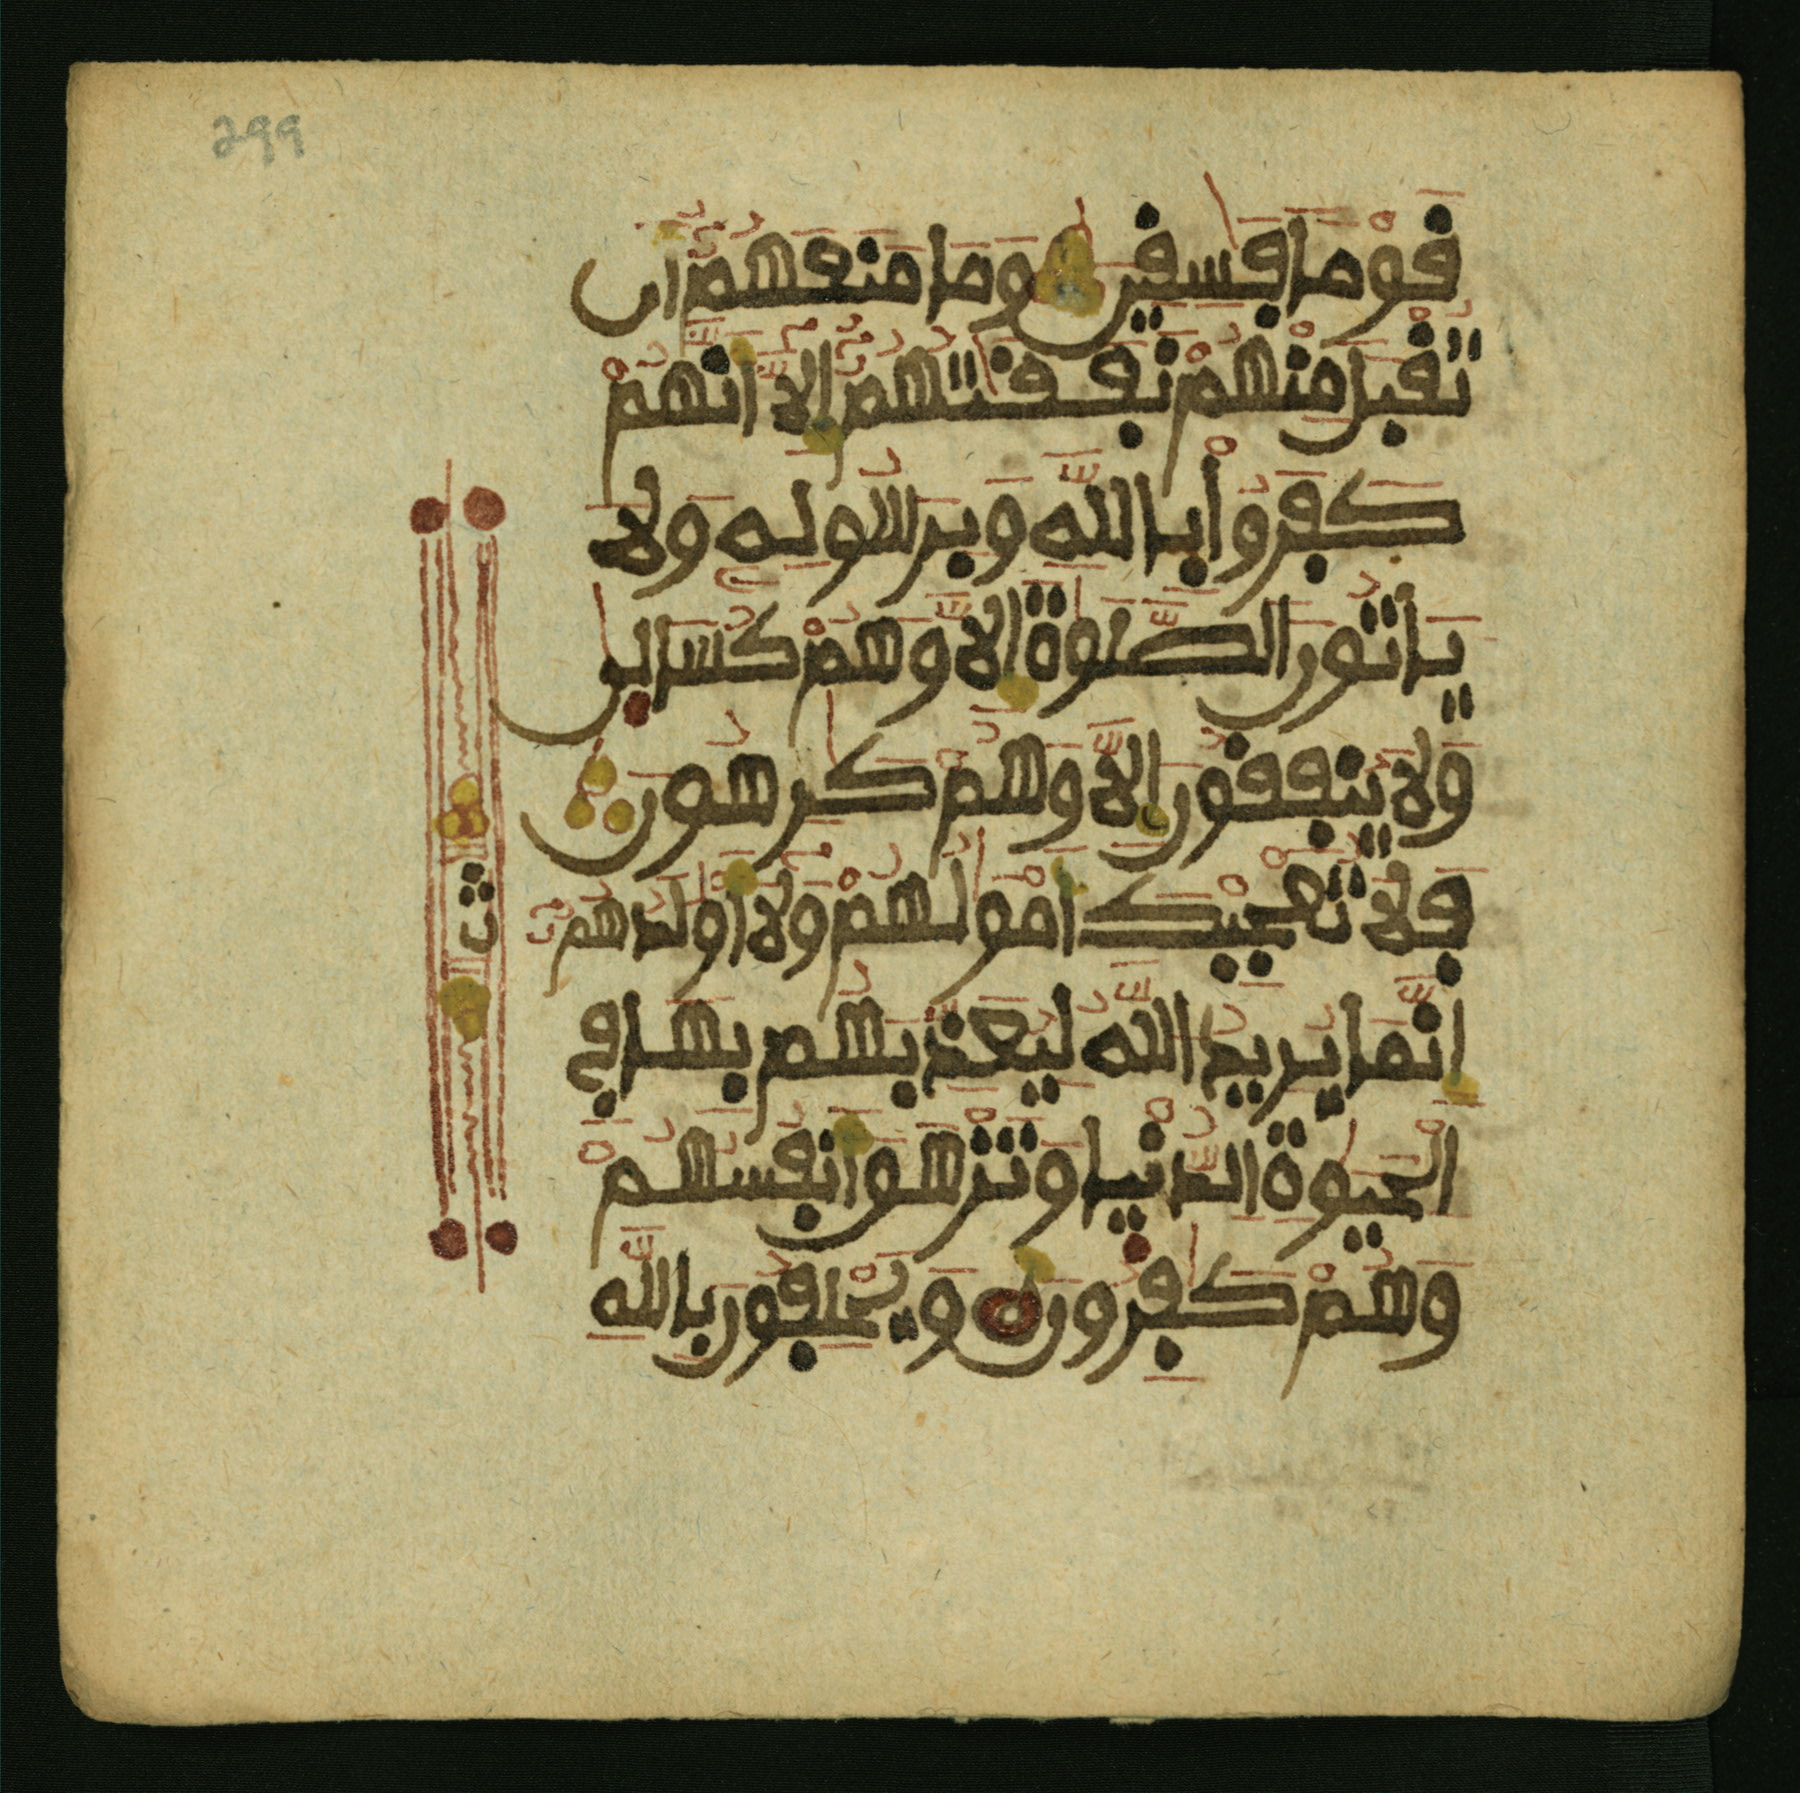 299
قَوْمًا فَٰسِقِينَ وَمَا مَنَعَهُمُۥٓ أَن
تُقْبَلَ مِنْهُمْ نَفَقَٰتُهُمُۥٓ إِلَّآ أَنَّهُمْ
كَفَرُوا۟ بِاللَّهِ وَبِرَسُولِهِۦ وَلَا
يَاتُونَ الصَّلَوٰةَ إِلَّا وَهُمْ كُسَالَىٰ
وَلَا يُنفِقُونَ إِلَّا وَهُمْ كَٰرِهُونَ
فَلَا تُعْجِبْكَ أَمْوَٰلُهُمْ وَلَآ أَوْلَٰدُهُمُۥٓ
ث
إِنَّمَا يُرِيدُ اللَّهُ لِيُعَذِّبَهُم بِهَا فِى
الْحَيَوٰةِ الدُّنْيَا وَتَزْهَقَ أَنفُسُهُمْ
وَهُمْ كَٰفِرُونَ وَيَحْلِفُونَ بِاللَّهِ